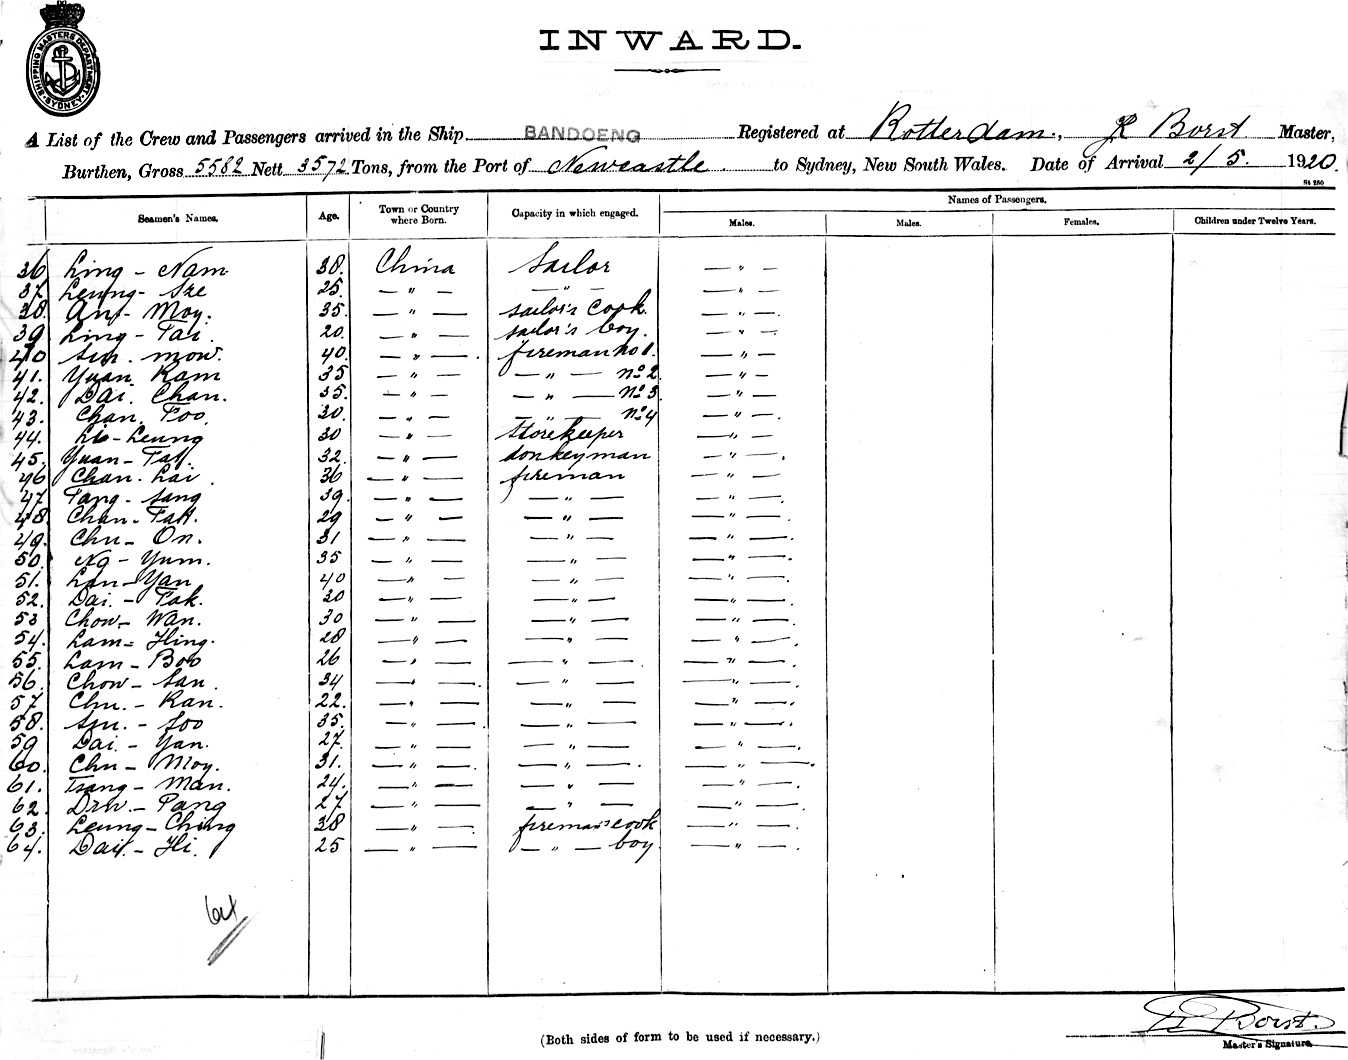 SHIPPING MASTERS DEPARTMENT SYDNEY
INWARD.
A List of the Crew and Passengers arrived in the Ship BANDOENG Registered at Rotterdam., Borst Master,
Burthen, Gross 5582 Nett 3572 Tons, from the Port of Newcastle. to Sydney, New South Wales. Date of Arrival 2/5. 1920.
St 250
Seamen's Names. Age. Town or Country where Born. Capacity in which engaged. Names of Passengers.
Males. Males. Females. Children under Twelve Years.
36 Ling - Nam 38. China Sailor — " —
37. Leung - Sze 25. — " — — " — — " —
38. Moy. 35. — " — sailor's cook. — " —
39 Ling - Tai. 20. — " — sailor's boy. — " —
40 mow. 40. — " — fireman no 1. — " —
41. Yuan. Kam 35 — " — — " — No 2 — " —
42. Dai. Chan. 35. — " — — " — No 3 — " —
43. Chan. Foo. 30. — " — — " — No 4 — " —
44. Leung 30 — " — Storekeeper — " —
45. Yuan - 32. — " — donkeyman — " —
46 Chan. Lai. 36 — " — fireman — " —
47 Tang - Sang 39. — " — — " — — " —
48. Chan - 29 — " — — " — — " —
49. Chu - On. 31 — " — — " — — " —
50. Ng - Yum. 35 — " — — " — — " —
51. Lan - Yan 40 — " — — " — — " —
52. Dai. - Pak. 30 — " — — " — — " —
53 Chow - Wan. 30 — " — — " — — " —
54. Lam - Hing. 28 — " — — " — — " —
55. Lam - Boo 26 — " — — " — — " —
56. Chow - San. 34 — " — — " — — " —
57 Chu. - Kan. 22. — " — — " — — " —
58. - Soo 35. — " — — " — — " —
59 Dai - Yan. 27. — " — — " — — " —
60. Chu - Moy. 31. — " — — " — — " —
61. Tsang - Man. 24. — " — — " — — " —
62. - Pang 27 — " — — " — — " —
63. Leung - Ching 38 — " — fireman's cook — " —
64. Dai. - Hi. 25 — " — — " — boy. — " —
64
(Both sides of form to be used if necessary.)
Borst.
Master's Signature.